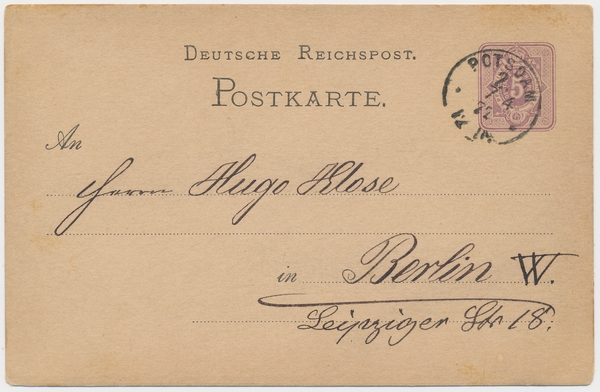 DEUTSCHE REICHSPOST.
POSTKARTE.
POTSDAM
5
An
Herrn Hugo Klose
in Berlin W.
Leipziger Str 18.